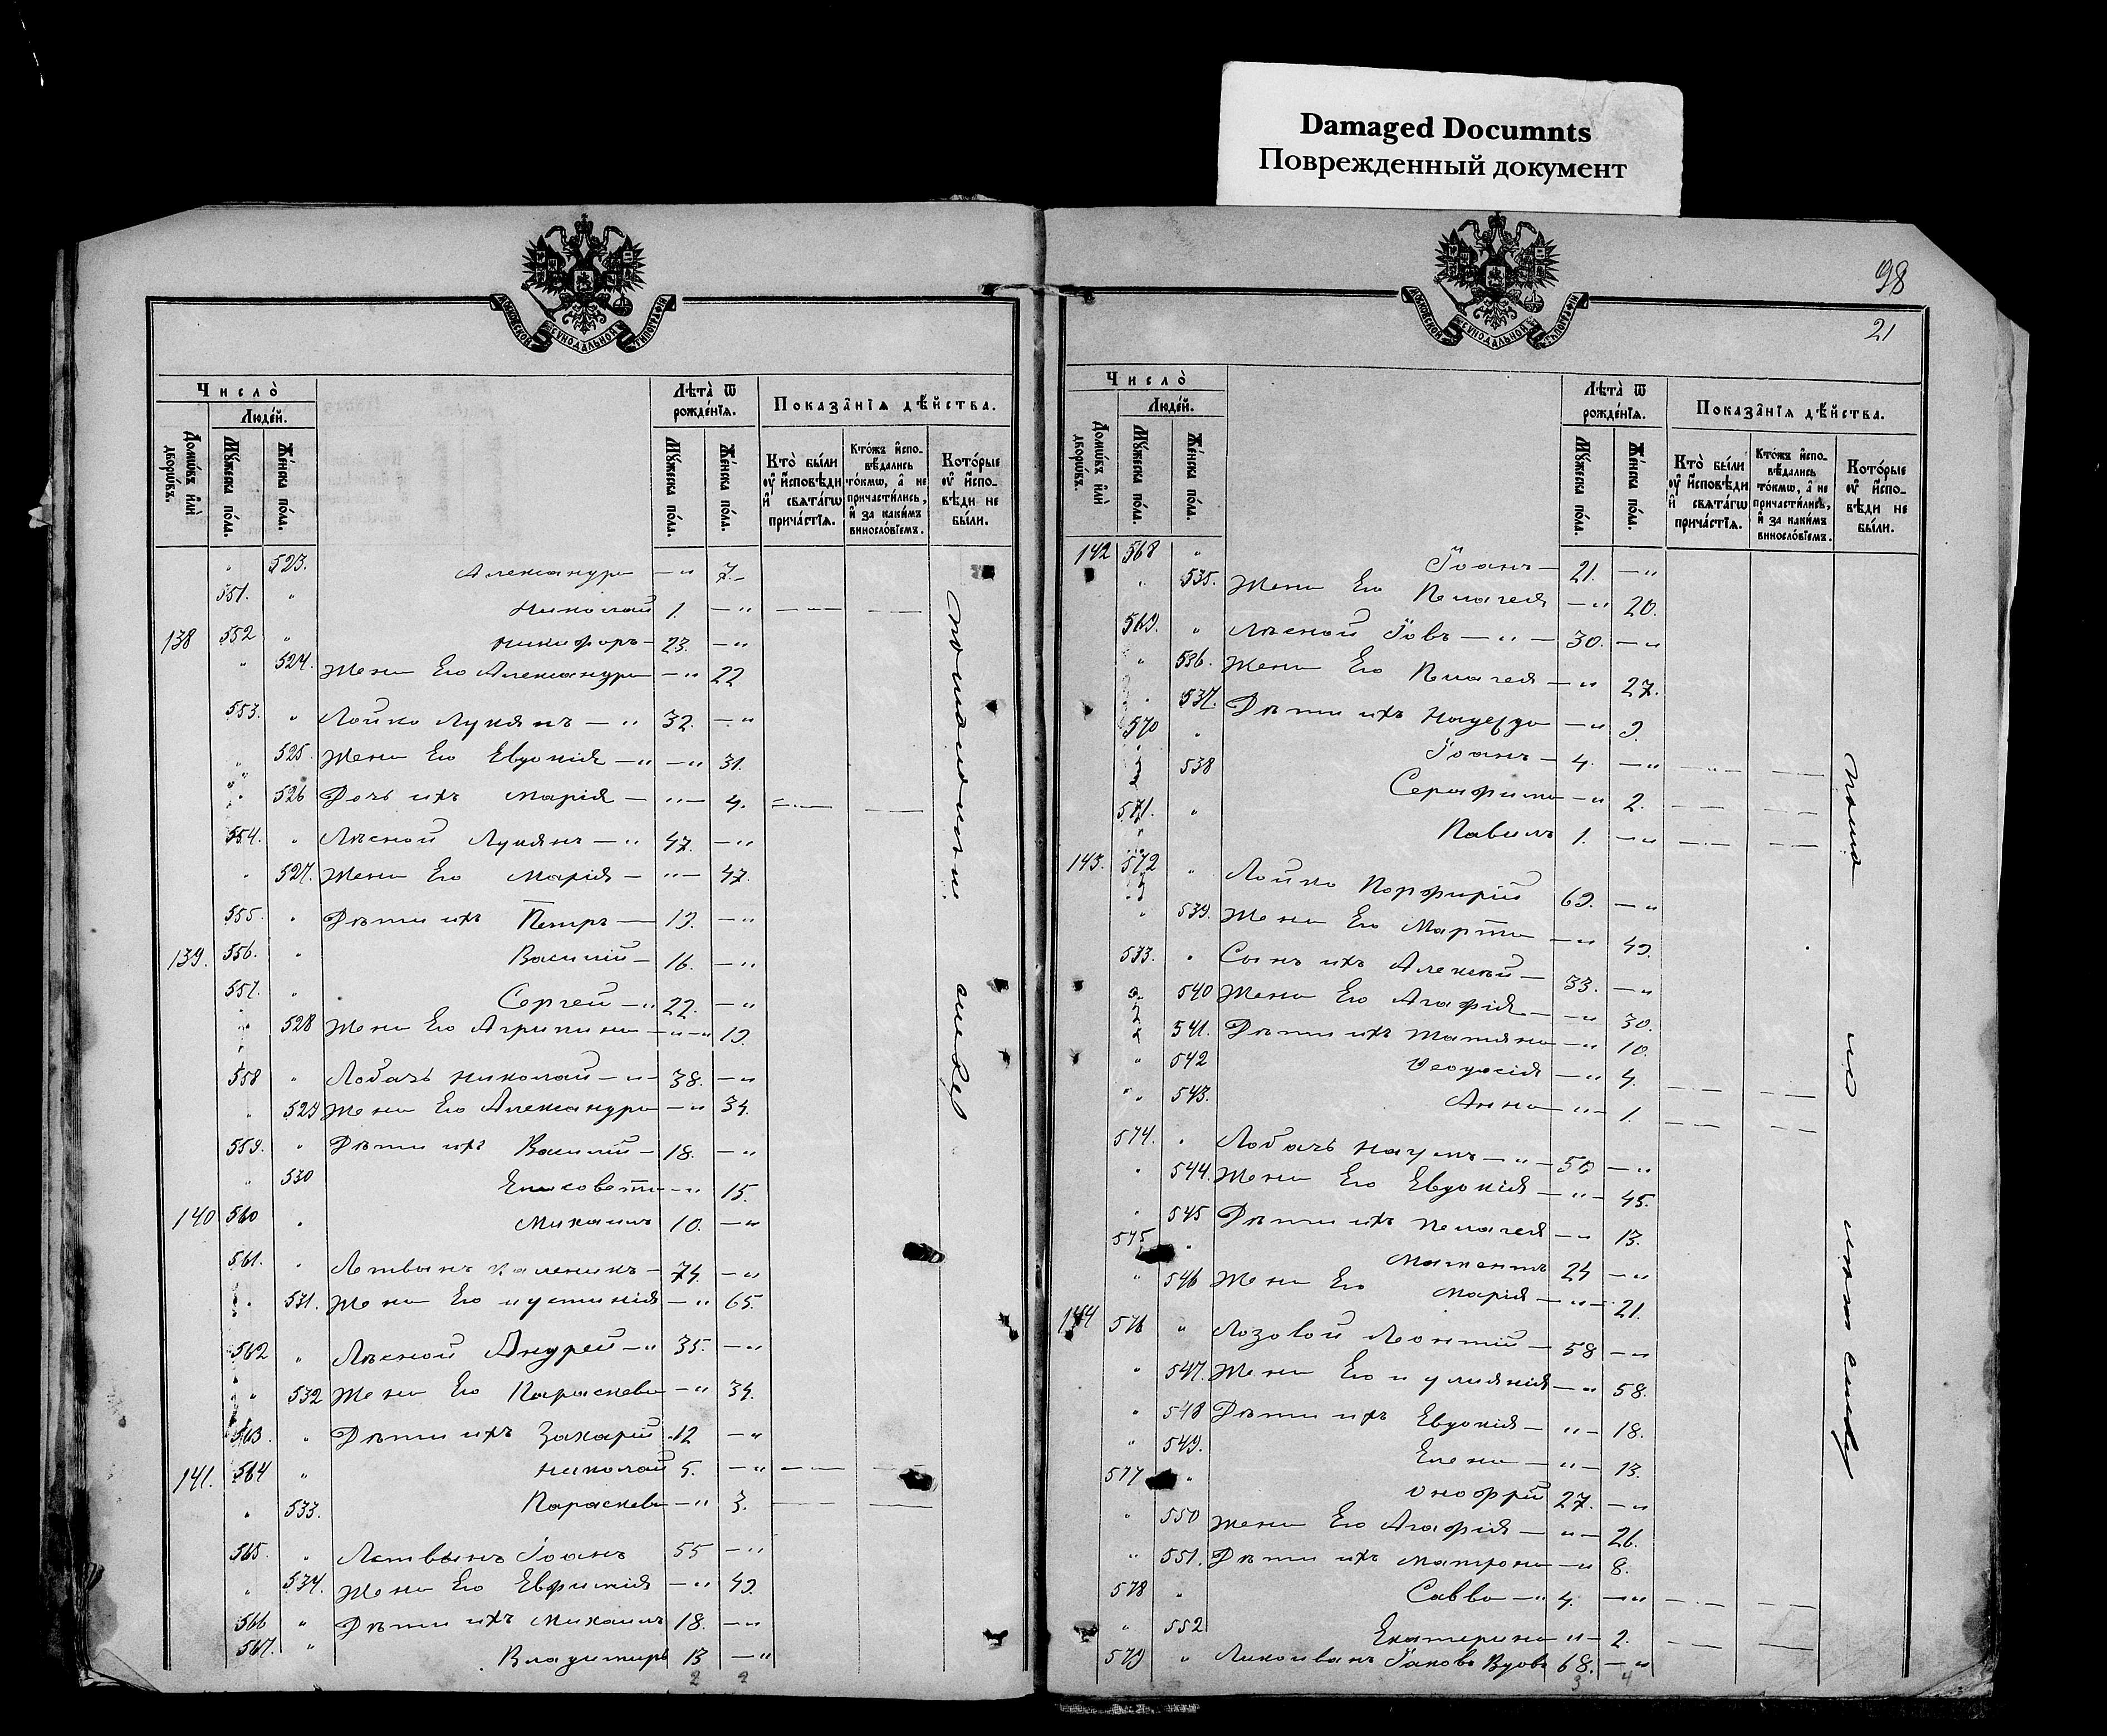 Damaged Documnts
Поврежденный документ
98
21
МОСКОВСКОЙ СѴНОДАЛЬНОЙ ТИПОГРАФІИ
Число̀
Люде́й.
Домѡ́въ и҆лѝ дворѡ́въ.
Мꙋ́жеска по́ла.
Же́нска по́ла.
Лѣта̀ ѿ рожде́нїѧ.
Мꙋ́жеска по́ла.
Же́нска по́ла.
Показа̑нїѧ дѣ́йства.
Кто̀ бы́ли ᲂу҆ и҆́сповѣди и҆ свѧта́гѡ прича́стїѧ.
Кто́жъ и҆спо-вѣ́дались то́кмѡ, а҆ не причасти́лись, и҆ за каки́мъ винословїемъ.
Кото́рые ᲂу҆ и҆́спо-вѣди не бы́ли.
" 523. Александра — " 7.
551. " Николай 1. — "
138 552 " Никифоръ — 23. — "
" 524. Жена Его Александра — " 22
553. " Лойко Лукянъ — " 32. — "
" 525. Жена Его Евдокія — " — " 31.
" 526 Дочь ихъ Марія — " — 4.
554. " Лѣсной Лукянъ — " 47. — "
" 527. Жена Его Марія — " — 47.
555. " Дѣти ихъ Петръ — 19. — "
139. 556. " Василій — 16. — "
557. " Сергей — " 22. — "
" 528 Жена Его Агрипина — " — " 19.
558 " Лобачь Николай — " — 38. — "
" 529 Жена Его Александра — " 34.
559. " Дѣти ихъ Василій — 18. — "
" 530 Елисовета — " 15.
140 560 " Михаилъ 10. — "
561. " Летвынъ Каленикъ — 74. — "
" 531. Жена Его Иустинія — " 65.
562 " Лѣсной Андрей — " 35. — "
" 532 Жена Его Параскева — " 34.
563. " Дѣти ихъ Захарій 12 — "
141. 564 " Николай 5. — "
" 533. Параскева — " 3.
565. " Летвынъ Іоанъ 55 — "
" 534. Жена Его Евфимія — " 49.
566 " Дѣти ихъ Михаилъ 18. — "
567. " Владимиръ 13 — "
2 2
Число̀
Люде́й.
Домѡ́въ и҆лѝ дворѡ́въ.
Мꙋ́жеска по́ла.
Же́нска по́ла.
Лѣта̀ ѿ рожде́нїѧ.
Мꙋ́жеска по́ла.
Же́нска по́ла.
Показа̑нїѧ дѣ́йства.
Кто̀ бы́ли ᲂу҆ и҆́сповѣди и҆ свѧта́гѡ прича́стїѧ.
Кто́жъ и҆спо-вѣ́дались то́кмѡ, а҆ не причасти́лись, и҆ за каки́мъ винословїемъ.
Кото́рые ᲂу҆ и҆́спо-вѣди не бы́ли.
142 568 " Іоанъ — 21. — "
" 535. Жена Его Пелагея — " 20.
569. " Лѣсной Іовъ — " — 30. — "
" 536. Жена Его Пелагея — " 27.
" 537. Дѣти ихъ Надежда — " 9.
570 " Іоанъ — 4. — "
538 Серафима — " 2.
571. " Павилъ 1. — "
143. 572 " Лойко Порфирій 69. — "
" 539. Жена Его Марта — " 49.
573. " Сынъ ихъ Алексѣй — 33. — "
540 Жена Его Агафія — " 30.
541. Дѣти ихъ Татяна — " 10.
" 542 Феодосія — " 4.
" 543. Анна — " — 1.
574. " Лобачь Наумъ — " — 50 — "
" 544. Жена Его Евдокія — " — 45.
" 545 Дѣти ихъ Пелагея — " 13.
575 " 24 — "
" 546 Жена Его Марія — " — 21.
144 576 " Лозовой Леонтій — 58 — "
" 547. Жена Его Иулиянія — " 58.
" 548 Дѣти ихъ Евдокія — " — 18.
" 549. Елена — " — 13.
577 " Онофрій 27. — "
" 550 Жена Его Агафія — " — 26.
" 551. Дѣти ихъ Матрона — " 8.
578 " Савва — " 4. — "
" 552 Екатерина " — 2.
579 " Іаковъ Вдовъ 68. — "
3 4